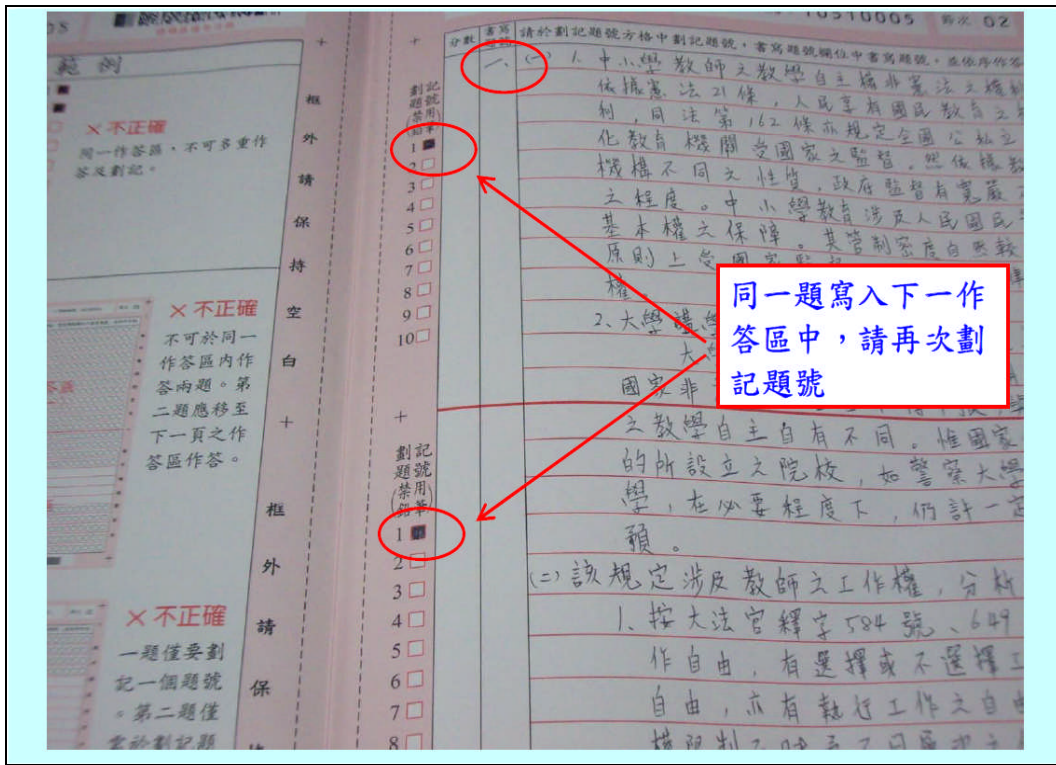 10510005 節次 02
範例
×不正確
同一作答區,不可多重作
答及劃記。
×不正確
不可於同一
作答區內作
答兩題。第
二題應移至
下一頁之作
答區作答。
×不正確
一題僅要劃
記一個題號
。第二題僅
框外請保持空白
框外請保
劃記
題號
禁用
(鉛筆)
1
2
3
4
5
6
7
8
9
10
劃記
題號
禁用
(鉛筆)
1
2
3
4
5
6
7
8
分數
書寫題號
請於劃記題號方格中劃記題號,書寫題號欄位中書寫題號,並依序作答
一、
(一) 1. 中小學教師之教學自主權非憲法之權利
依據憲法21條,人民享有國民教育之權
利,同法第162條亦規定全國公私立
化教育機關受國家之監督。然依據教
機構不同之性質,政府監督有寬嚴
之程度。中小學教育涉及人民國民
基本權之保障。其管制密度自然較
原則上受國家
權。
2、大學
大
國家非
之教學自主自有不同。惟國家
的所設立之院校,如警察大學
學,在必要程度下,仍許一定
預。
(二) 該規定涉及教師之工作權,分析
1、按大法官釋字584號、649
作自由,有選擇或不選擇工
自由,亦有執行工作之自由
同一題寫入下一作
答區中,請再次劃
記題號